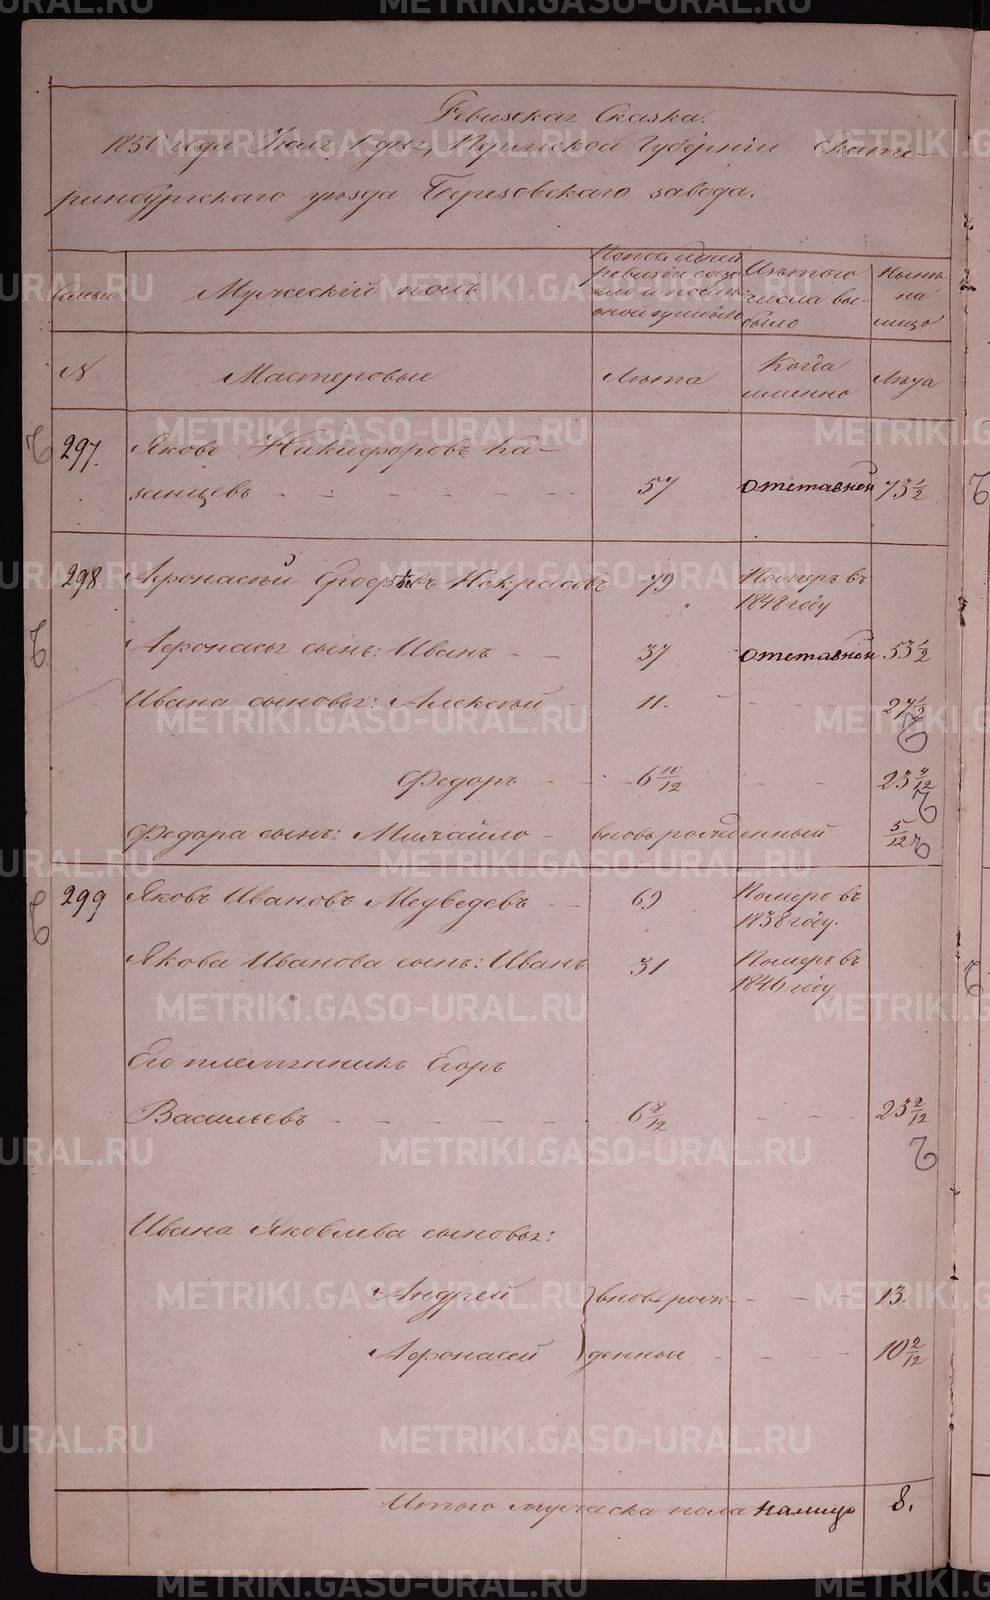 Ревизская Сказка.
1850 года Июля 1 дня, Пермской Губернiи Екате-
ринбургскаго уѣзда Березовскаго завода.
Семьи
Мужескiй полъ
По последней
ревизiи состо
яло и после
оной прибыло
Изъ того
числа вы-
было
Нынѣ
на
лицо
N
Мастеровые
Лѣта
Когда
именно
Лѣта
297. Яковъ Никифоровъ Ка-
занцевъ 57 отставной 73 1/2
298. Афонасiй Ерофѣевъ Некрасовъ 79 Померъ въ
1848 году
Афонасья сынъ: Иванъ 37 отставной 53 1/2
Ивана сыновья: Алексѣй 11. 27 1/2
Федоръ 6 10/12 23 4/12
Федора сынъ: Михайло вновь рожденный 5/12
299 Яковъ Ивановъ Медведевъ 69 Померъ въ
1838 году.
Якова Иванова сынъ: Иванъ 31 Померъ въ
1846 году
Его племянникъ Егоръ
Васильевъ 6 8/12 23 2/12
Ивана Яковлева сыновья:
Андрей вновь рож- 13.
Афонасей денные 10 2/12
Итого мужеска пола налицо 8.
METRIKI.GASO-URAL.RU